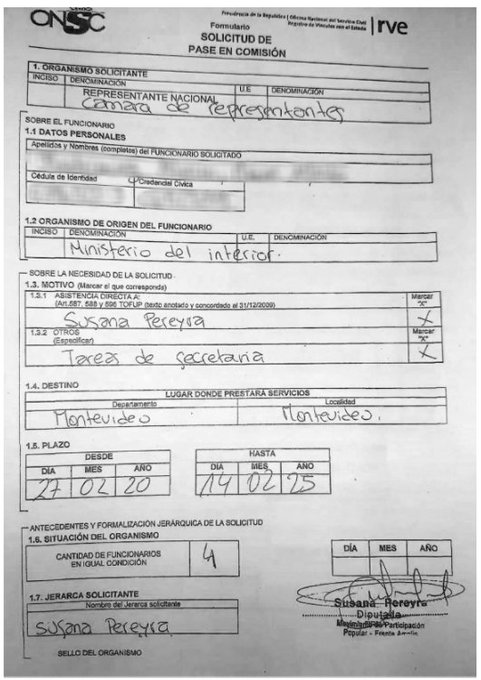 ONSC
Presidencia de la República | Oficina Nacional del Servicio Civil
Registro de Vínculos con el Estado
rve
Formulario
SOLICITUD DE
PASE EN COMISIÓN
1. ORGANISMO SOLICITANTE
INCISO DENOMINACIÓN U.E DENOMINACIÓN
REPRESENTANTE NACIONAL
Camara de representantes
SOBRE EL FUNCIONARIO
1.1 DATOS PERSONALES
Apellidos y Nombres (completos) del FUNCIONARIO SOLICITADO
Cédula de Identidad Credencial Cívica
1.2 ORGANISMO DE ORIGEN DEL FUNCIONARIO
INCISO DENOMINACIÓN U.E. DENOMINACIÓN
Ministerio del interior.
SOBRE LA NECESIDAD DE LA SOLICITUD
1.3. MOTIVO (Marcar el que corresponda)
1.3.1 ASISTENCIA DIRECTA A: Marcar
(Art.587, 588 y 596 TOFUP (texto anotado y concordado al 31/12/2009) "X"
Susana Pereyra X
1.3.2 OTROS Marcar
(Especificar) "X"
Tareas de secretaria X
1.4. DESTINO
LUGAR DONDE PRESTARÁ SERVICIOS
Departamento Localidad
Montevideo Montevideo.
1.5. PLAZO
DESDE HASTA
DÍA MES AÑO DÍA MES AÑO
27 02 20 14 02 25
ANTECEDENTES Y FORMALIZACIÓN JERÁRQUICA DE LA SOLICITUD
1.6. SITUACIÓN DEL ORGANISMO
CANTIDAD DE FUNCIONARIOS
EN IGUAL CONDICIÓN
4
DÍA MES AÑO
1.7. JERARCA SOLICITANTE
Nombre del Jerarca solicitante
Susana Pereyra
Susana Pereyra
Diputada
Movimiento de Participación
Popular - Frente Amplio
SELLO DEL ORGANISMO